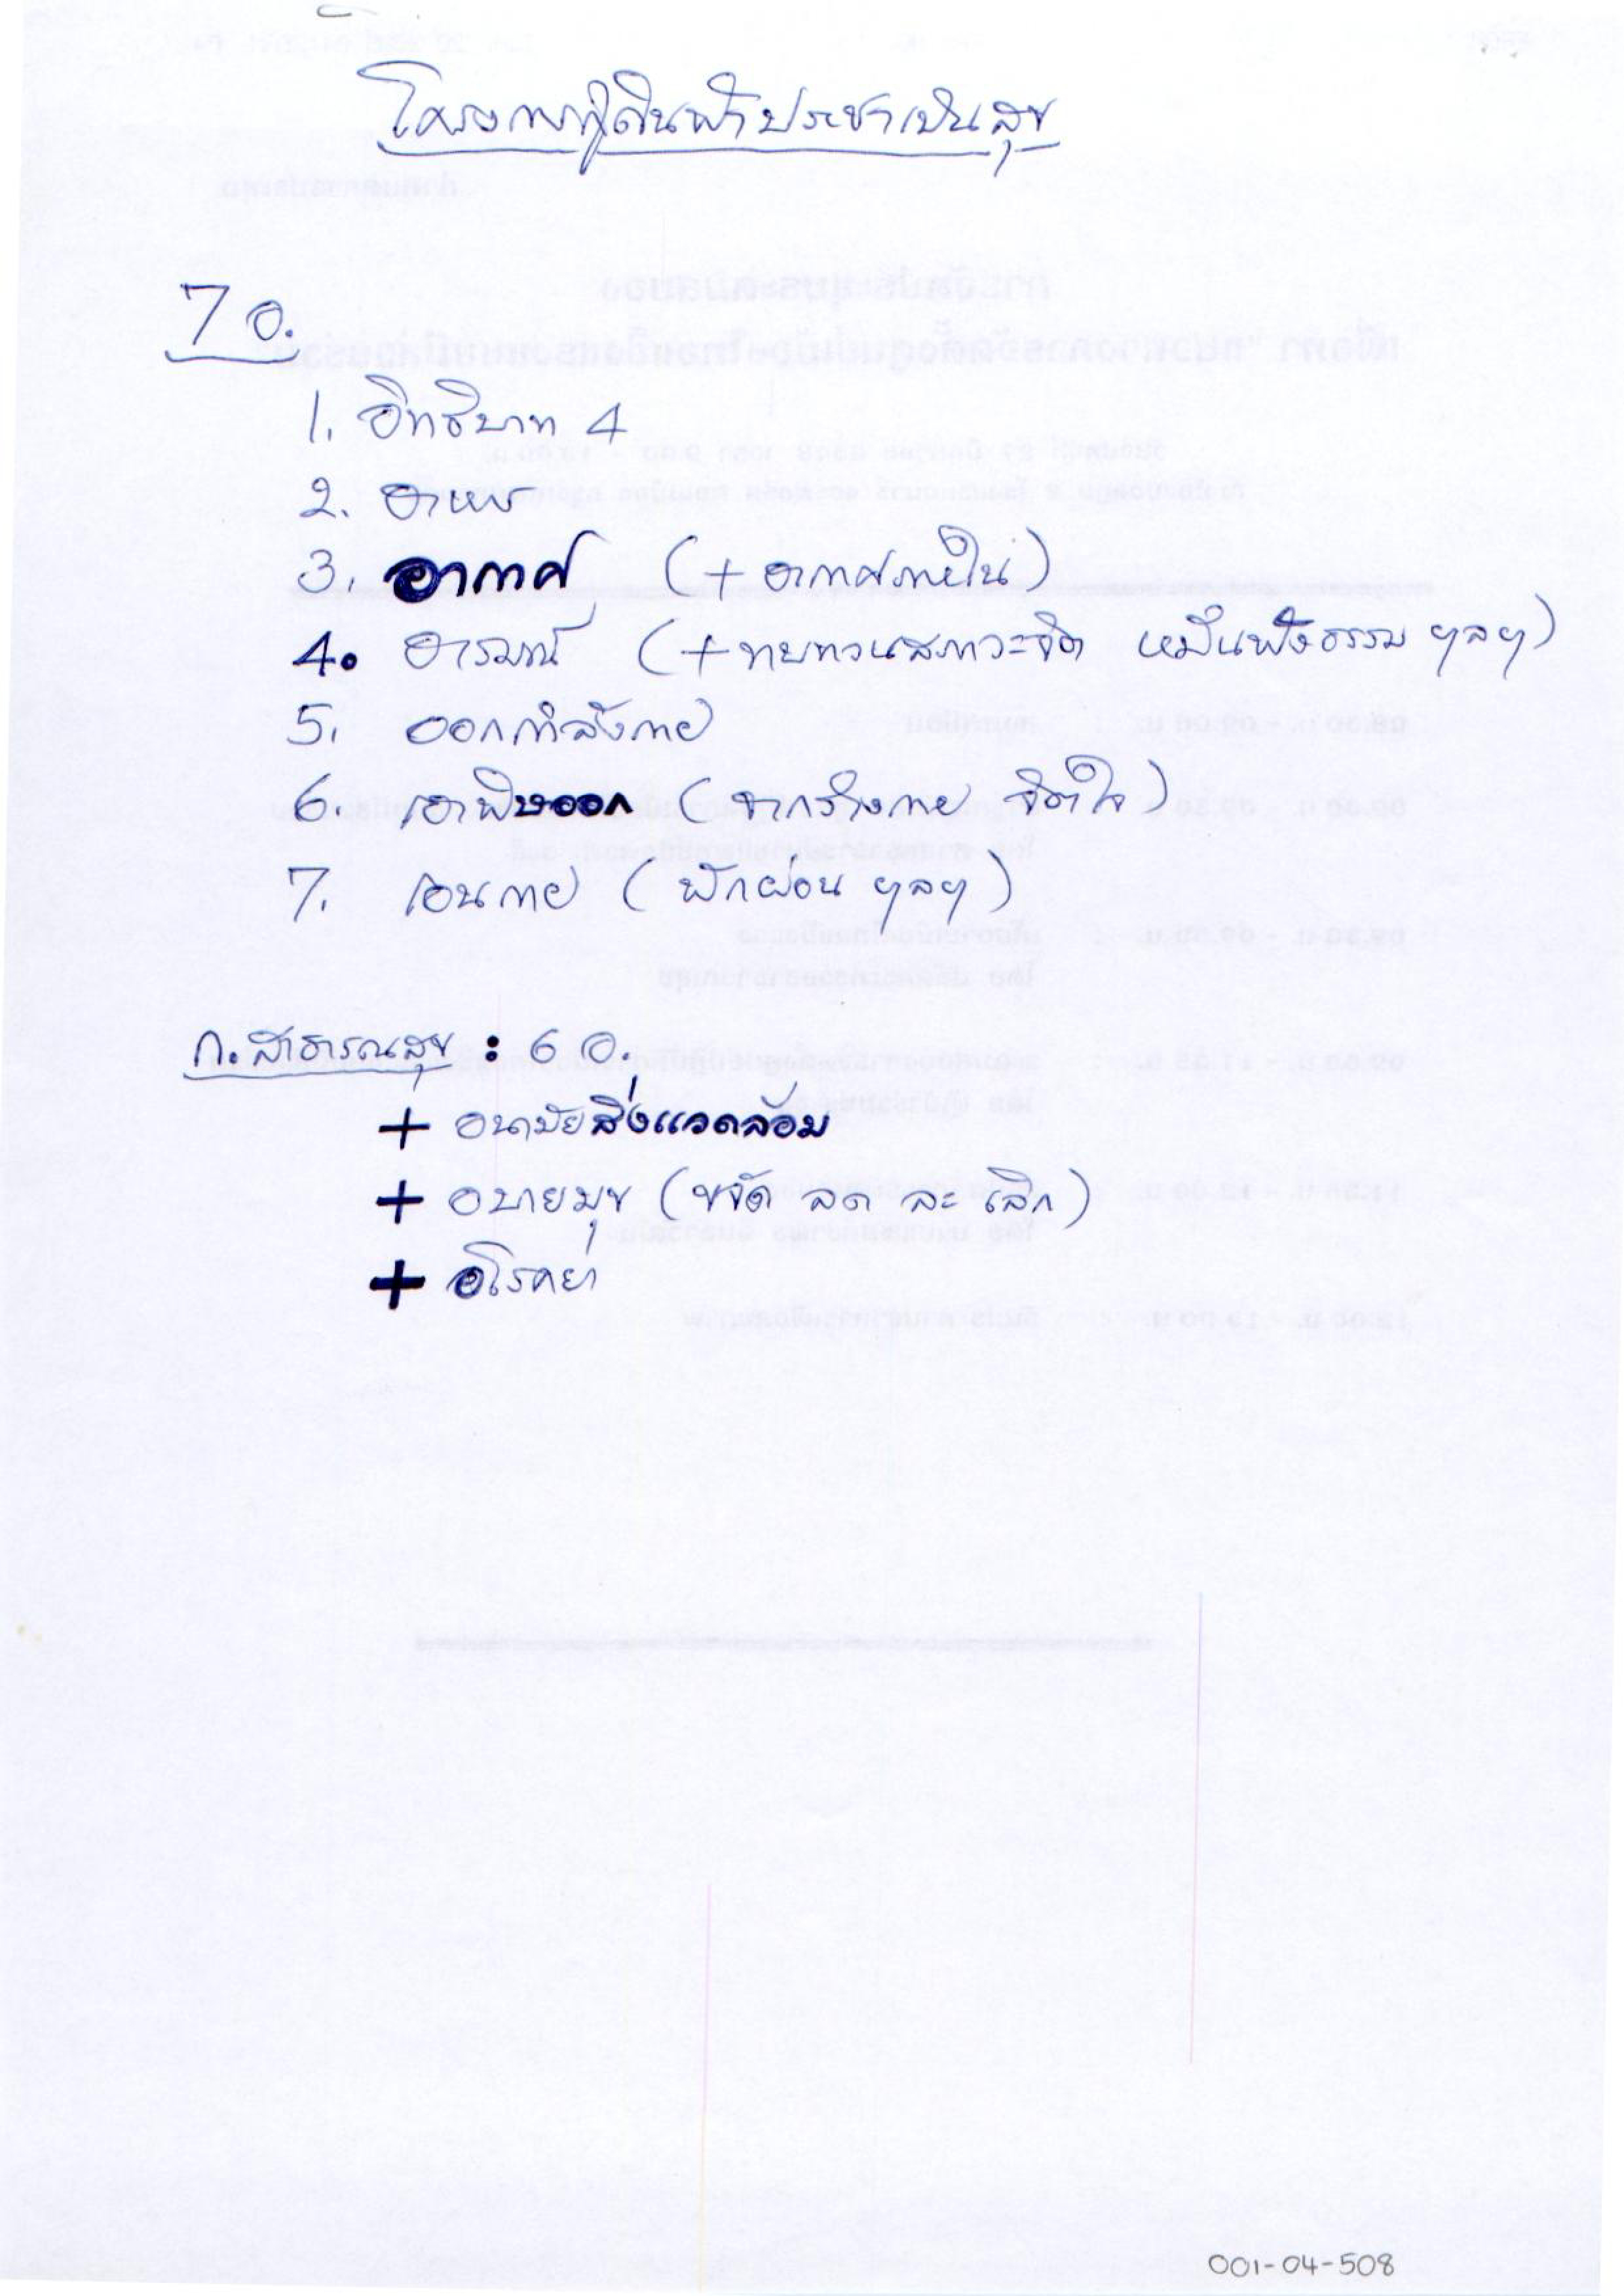 โครงการกู้ดินฟ้าประชาเป็นสุข
7 อ.
1. อิทธิบาท 4
2. อาหาร
3. อากาศ (+ อากาศภายใน)
4. อารมณ์ (+ ทบทวนสภาวะจิต หมั่นฟังธรรม ฯลฯ)
5. ออกกำลังกาย
6. เอาพิษออก (จากร่างกาย จิตใจ)
7. เอนกาย (พักผ่อน ฯลฯ)
ก.สาธารณสุข : 6 อ.
+ อนามัยสิ่งแวดล้อม
+ อบายมุข (ขจัด ลด ละ เลิก)
+ อโรคยา
001-04-508